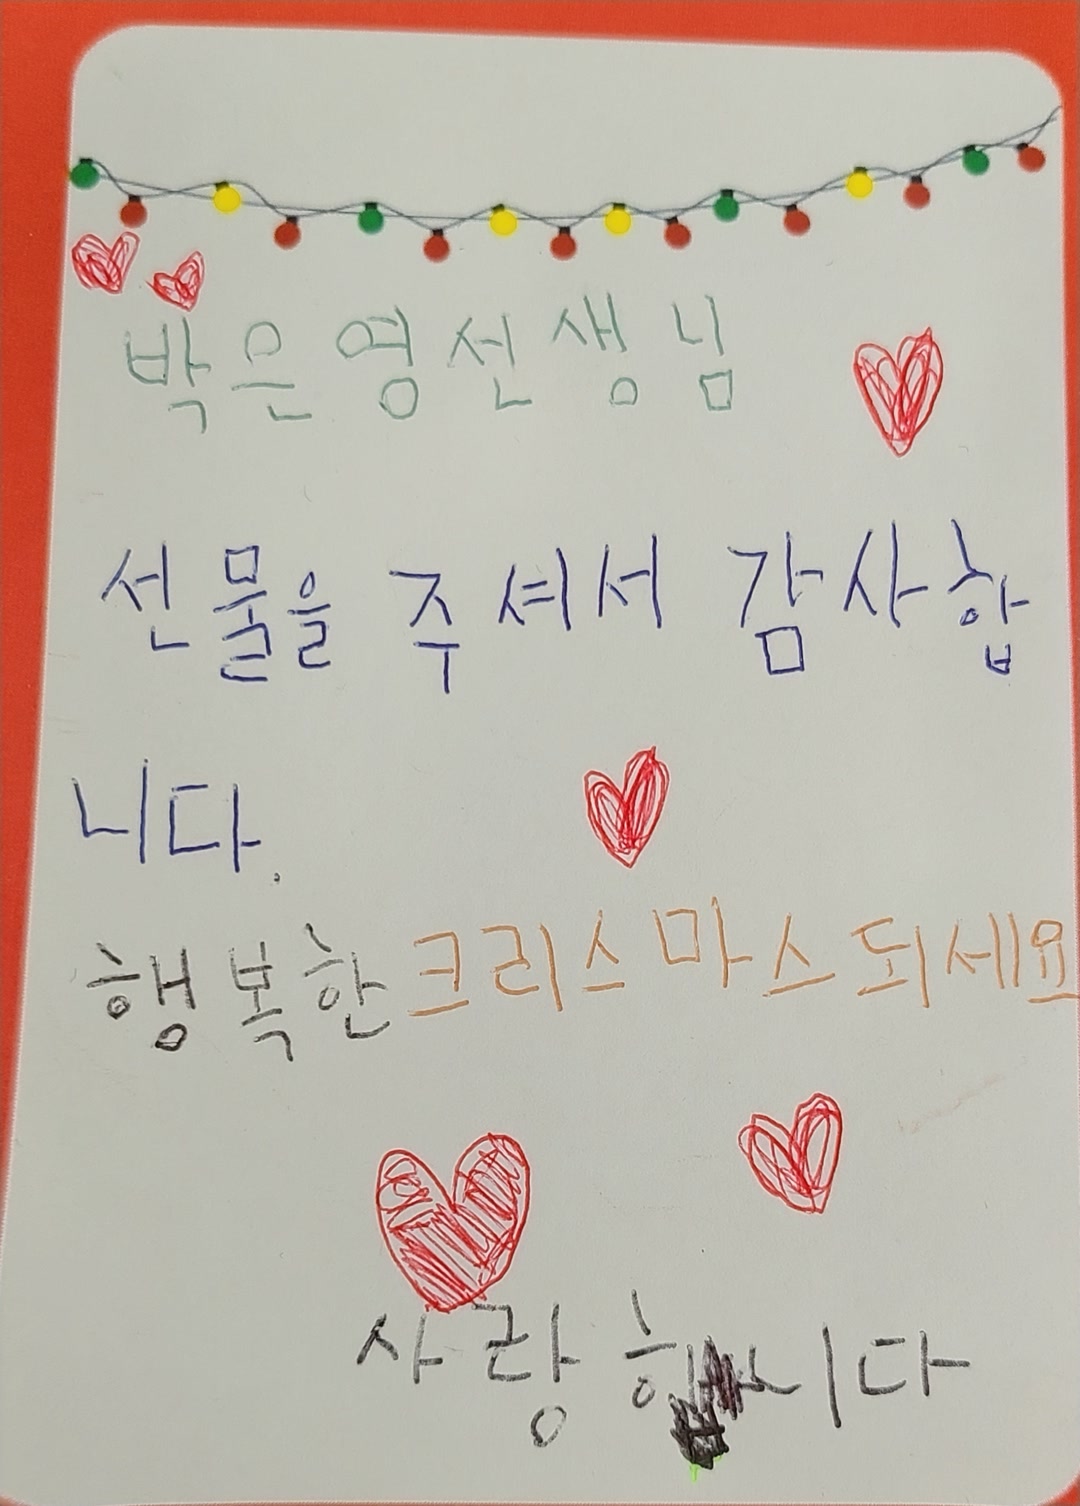 박은영선생님
선물을 주셔서 감사합
니다.
행복한크리스마스되세요
사랑합니다